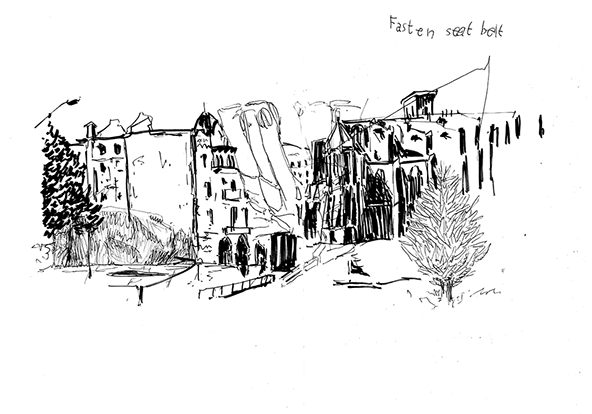 Fasten seat belt